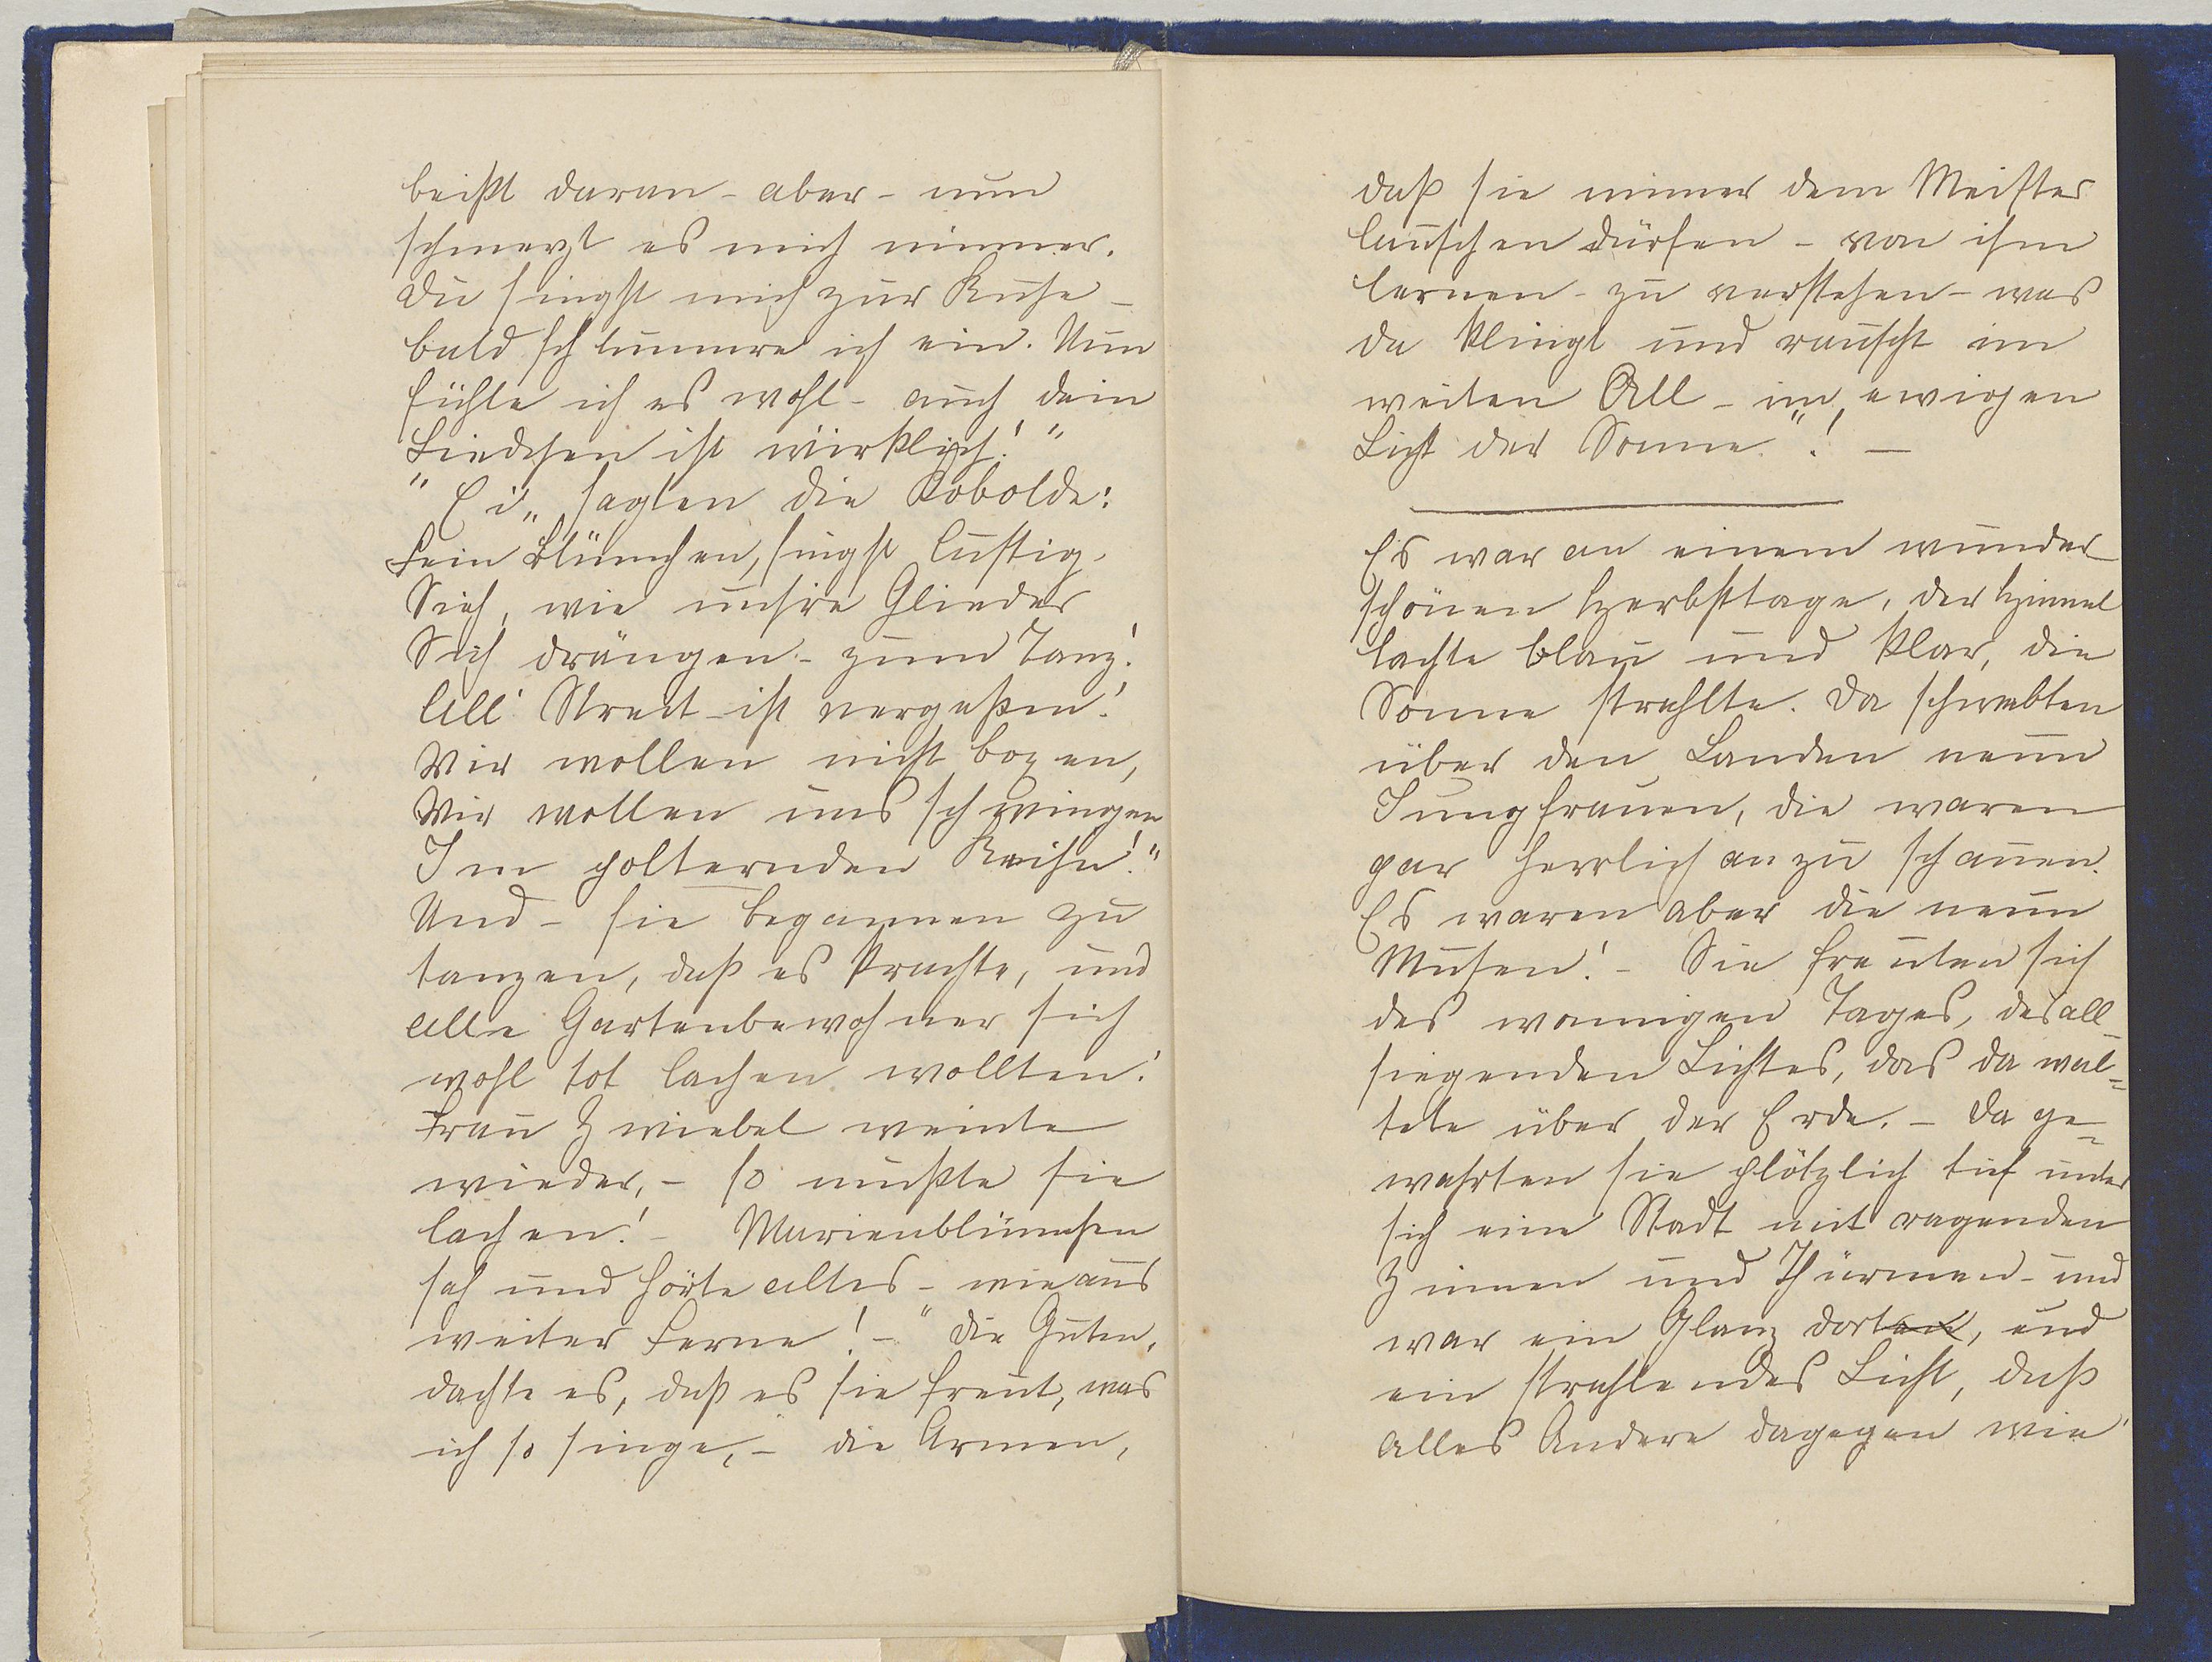 beißt daran - aber - nun
schmerzt es mich nimmer.
Du singst mich zur Ruhe -
bald schlummre ich ein. Nun
fühle ich es wohl - auch dein
Liedchen ist wirklich!"
"Ei" sagten die Kobolde:
Fein Blümchen, singst lustig.
Sieh, wie unsre Glieder
Sich drängen - zum Tanz!
All' Streit - ist vergeßen!
Wir wollen nicht boxen,
Wir wollen uns schwingen
Im polternden Reihn!"
Und - sie begannen zu
tanzen, daß es krachte, und
alle Gartenbewohner sich
wohl tot lachen wollten!
Frau Zwiebel weinte
wieder, - so mußte sie
lachen! - Marienblümchen
sah und hörte alles - wie aus
weiter Ferne! - "Die Guten,
dachte es, daß es sie freut, was
ich so singe, - die Armen,
daß sie nimmer dem Meister
lauschen dürfen - von ihm
lernen - zu verstehen - was
da klingt und rauscht im
weiten All - im ewigen
Licht der Sonne"! -
Es war an einem wunder
schönen Herbsttage, der Himmel
lachte blau und klar, die
Sonne strahlte. Da schwebten
über den Landen neun
Jungfrauen, die waren
gar herrlich anzuschauen.
Es waren aber die neun
Musen! - Sie freuten sich
des wonnigen Tages, des all-
siegenden Lichtes, das da wal=
tete über der Erde. - Da ge=
wahrten sie plötzlich tief unter
sich eine Stadt mit ragenden
Zinnen und Thürmen - und
war ein Glanz dorten, und
ein strahlendes Licht, daß
alles Andere dagegen wie